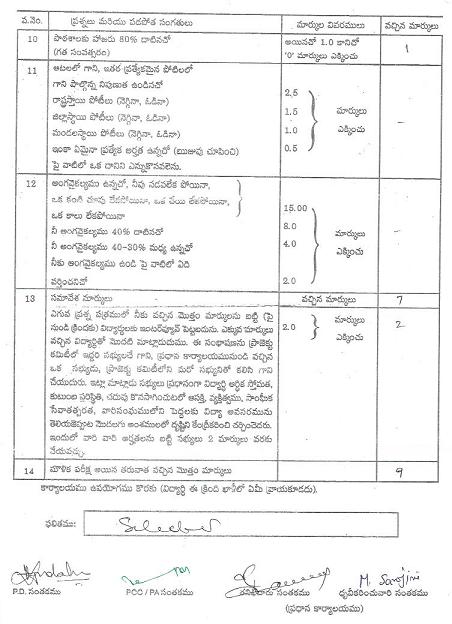 వ.నెం. ప్రశ్నలు మరియు పదపోత సంగతులు మార్కుల వివరములు వచ్చిన మార్కులు
10 పాఠశాలకు హాజరు 80% దాటినచో అయినతో 1.0 కానిచో 1
(గత సంవత్సరం) '0' మార్కులు ఎక్కించు
11 ఆటలలో గాని, ఇతర ప్రత్యేకమైన పోటీలలో
గాని పాల్గొన్న నిపుణత ఉండినచో
రాష్ట్రస్థాయి పోటీలు (నెగ్గినా, ఓడినా) 2.5
జిల్లాస్థాయి పోటీలు (నెగ్గినా, ఓడినా) 1.5 మార్కులు -
మండలస్థాయి పోటీలు (నెగ్గినా, ఓడినా) 1.0 ఎక్కించు
ఇంకా ఏమైనా ప్రత్యేక అర్హత ఉన్నచో (ఋజువు చూపించి) 0.5
పై వాటిలో ఒక దానిని ఎన్నుకొనవలెను.
12 అంగవైకల్యము ఉన్నచో, నీవు నడవలేక పోయినా,
ఒక కంటి చూపు లేకపోయినా, ఒక చేయి లేకపోయినా,
ఒక కాలు లేకపోయినా 15.00
నీ అంగవైకల్యము 40% దాటినచో 8.0 మార్కులు
నీ అంగవైకల్యము 40-30% మధ్య ఉన్నచో 4.0 ఎక్కించు
నీకు అంగవైకల్యము ఉండి పై వాటిలో ఏది
వర్తించనిచో 2.0
13 సమావేశ మార్కులు వచ్చిన మార్కులు 7
ఎగువ ప్రశ్న పత్రములో నీకు వచ్చిన మొత్తం మార్కులను బట్టి (పై 2.0 మార్కులు 2
నుండి క్రిందకు) విద్యార్థులకు ఇంటర్వ్యూవ్ పెట్టబడును. ఎక్కువ మార్కులు ఎక్కించు
వచ్చిన విద్యార్థితో మొదటి మాట్లాడుదుము. ఈ సంభాషణను ప్రాజెక్టు
కమిటీలో ఇద్దరి సభ్యులచే గాని, ప్రధాన కార్యాలయమునుండి వచ్చిన
ఒక సభ్యుడు, ప్రాజెక్టు కమిటీలోని మరో సభ్యునితో కలిసి గాని
చేయుదురు. ఇట్లా మాట్లాడు సభ్యులు ప్రధానంగా విద్యార్థి ఆర్థిక స్తోమత,
కుటుంబ పరిస్థితి, చదువు కొనసాగించుటలో ఆసక్తి, వ్యక్తిత్వము, సాంఘీక
సేవాతత్పరత, వారిసంఘములోని పెద్దలకు విద్యా అవసరమును
తెలియజెప్పుట మొదలగు అంశములలో దృష్టిని కేంద్రీకరించి చర్చించెదరు.
ఇందులో వారి వారి అర్హతలను బట్టి సభ్యులు 2 మార్కులు వరకు
వేయవచ్చు.
14 మౌళిక పరీక్ష అయిన తరువాత వచ్చిన మొత్తం మార్కులు 9
కార్యాలయము ఉపయోగము కొరకు (విద్యార్థి ఈ క్రింది ఖాళీలో ఏమీ వ్రాయకూడదు).
ఫలితము:
M. Sarojini
P.D. సంతకము PCO / PA సంతకము సంతకము ధృవీకరించువారి సంతకము
(ప్రధాన కార్యాలయము)